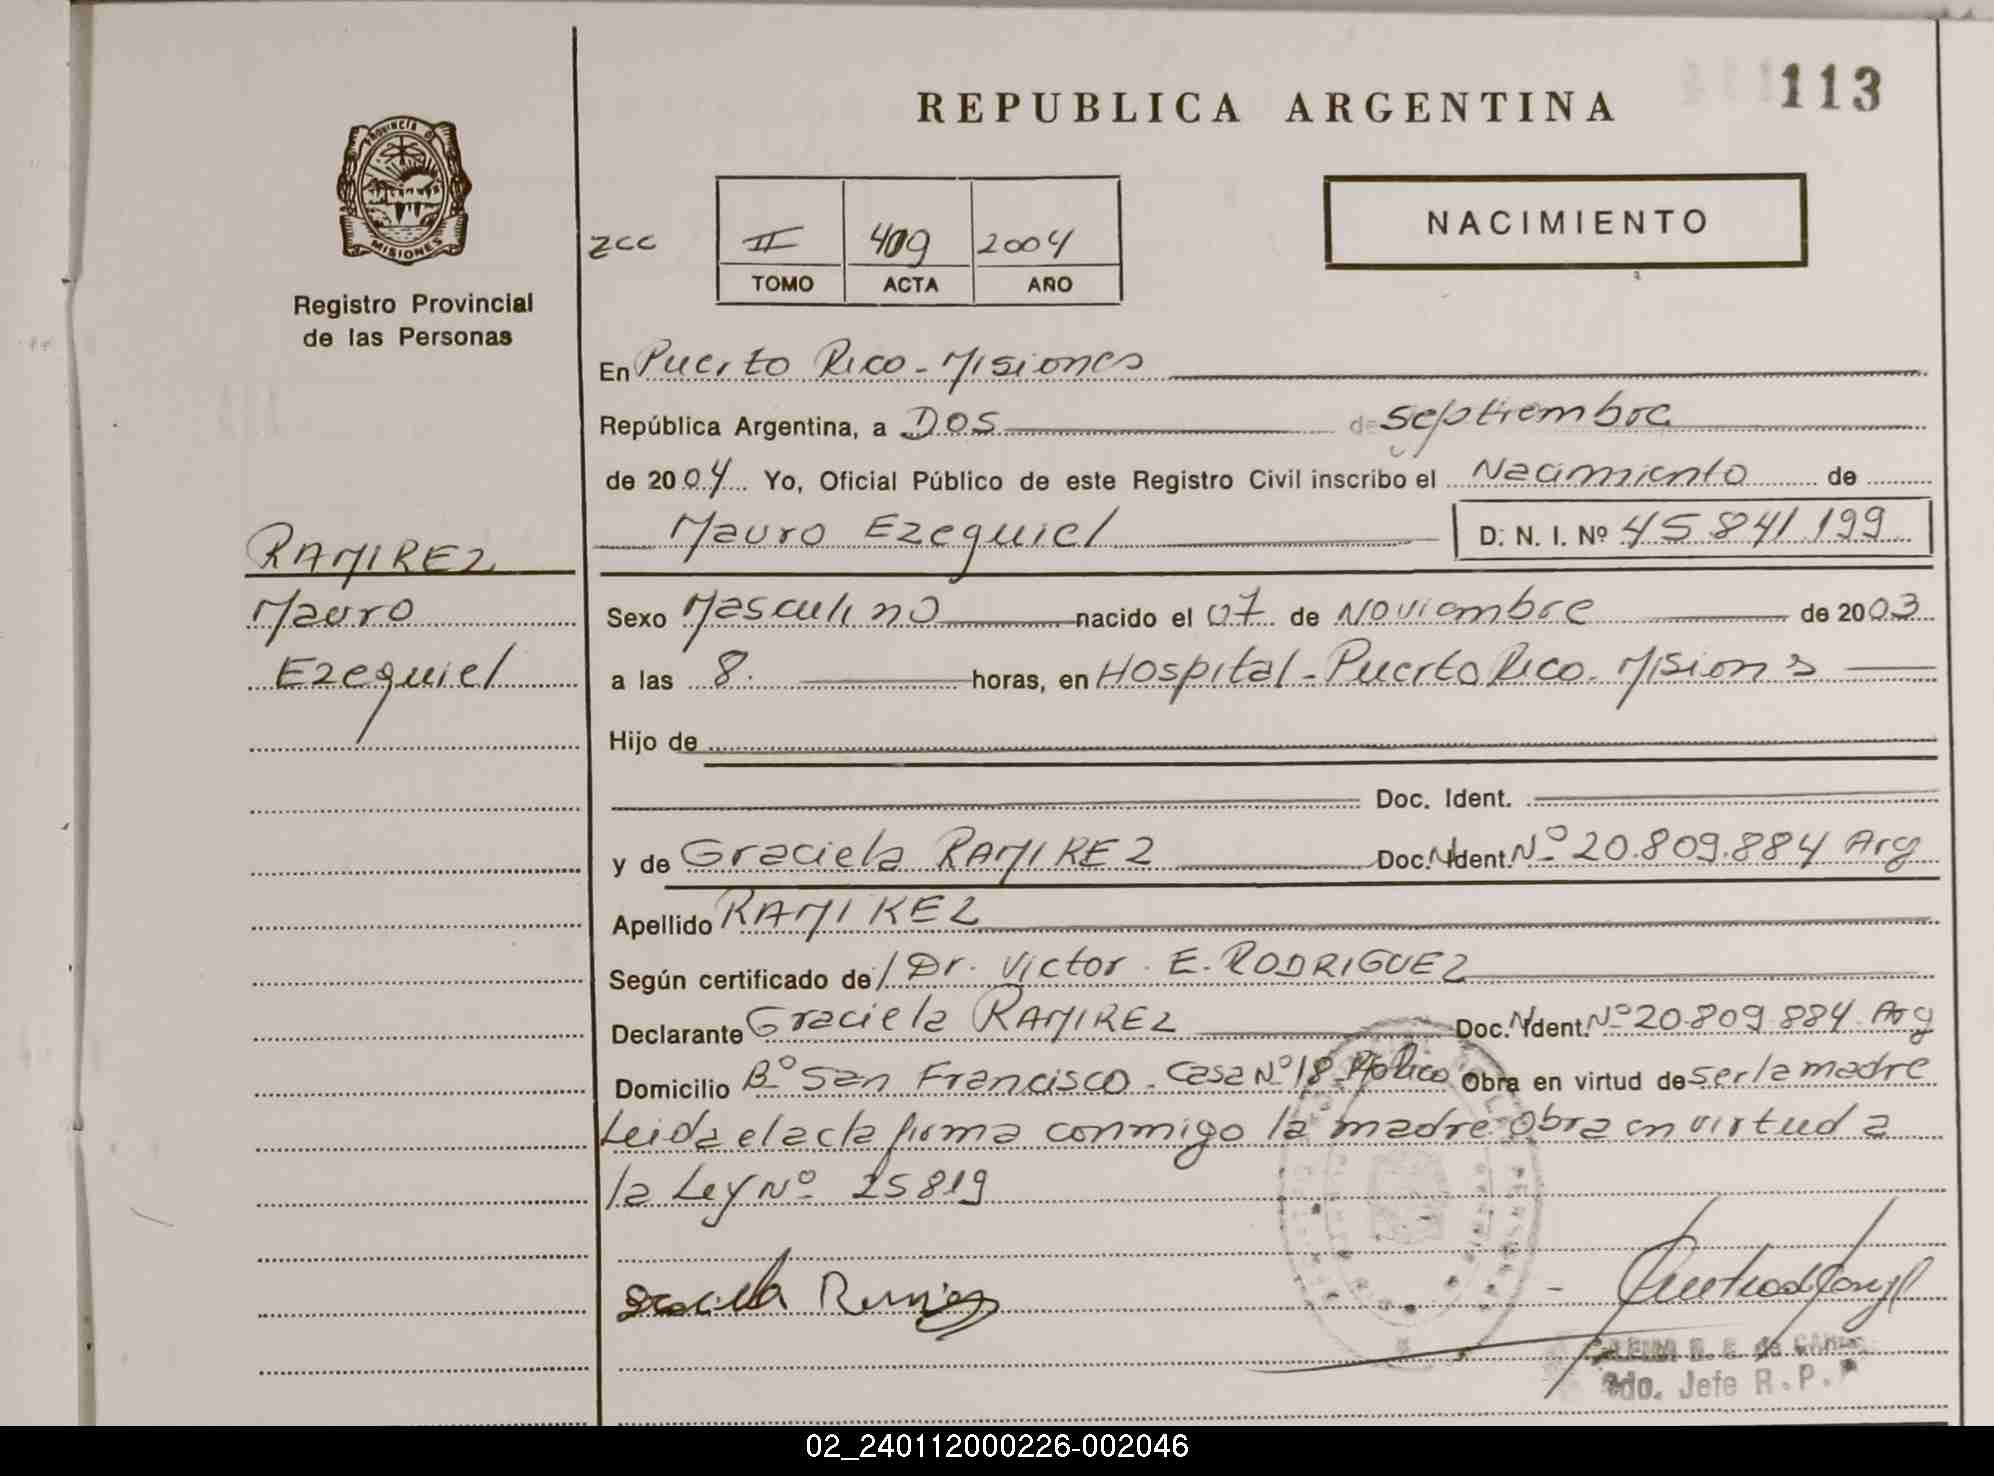 113
REPUBLICA ARGENTINA
PROVINCIA DE
MISIONES
Registro Provincial
de las Personas
NACIMIENTO
zcc II 409 2004
TOMO ACTA AÑO
En Puerto Rico - Misiones
República Argentina, a Dos de septiembre
de 2004 Yo, Oficial Público de este Registro Civil inscribo el Nacimiento de
Mauro Ezequiel D. N. I. Nº 45.841.199
RAMIREZ
Mauro
Ezequiel
Sexo Masculino nacido el 07 de Noviembre de 2003
a las 8. horas, en Hospital - Puerto Rico - Misions
Hijo de
Doc. Ident.
y de Graciela RAMIREZ Doc. Ident. Nº 20.809.884 Arg
Apellido RAMIREZ
Según certificado de / Dr. Victor E. RODRIGUEZ
Declarante Graciela RAMIREZ Doc. Ident. Nº 20.809.884 Arg
Domicilio Bº San Francisco - Casa Nº 18 - Pto Rico Obra en virtud de ser la madre
Leida el acta firma conmigo la madre Obra en virtud a
la Ley Nº 25819
Graciela Ramirez
2do. Jefe R.P.P
02_240112000226-002046